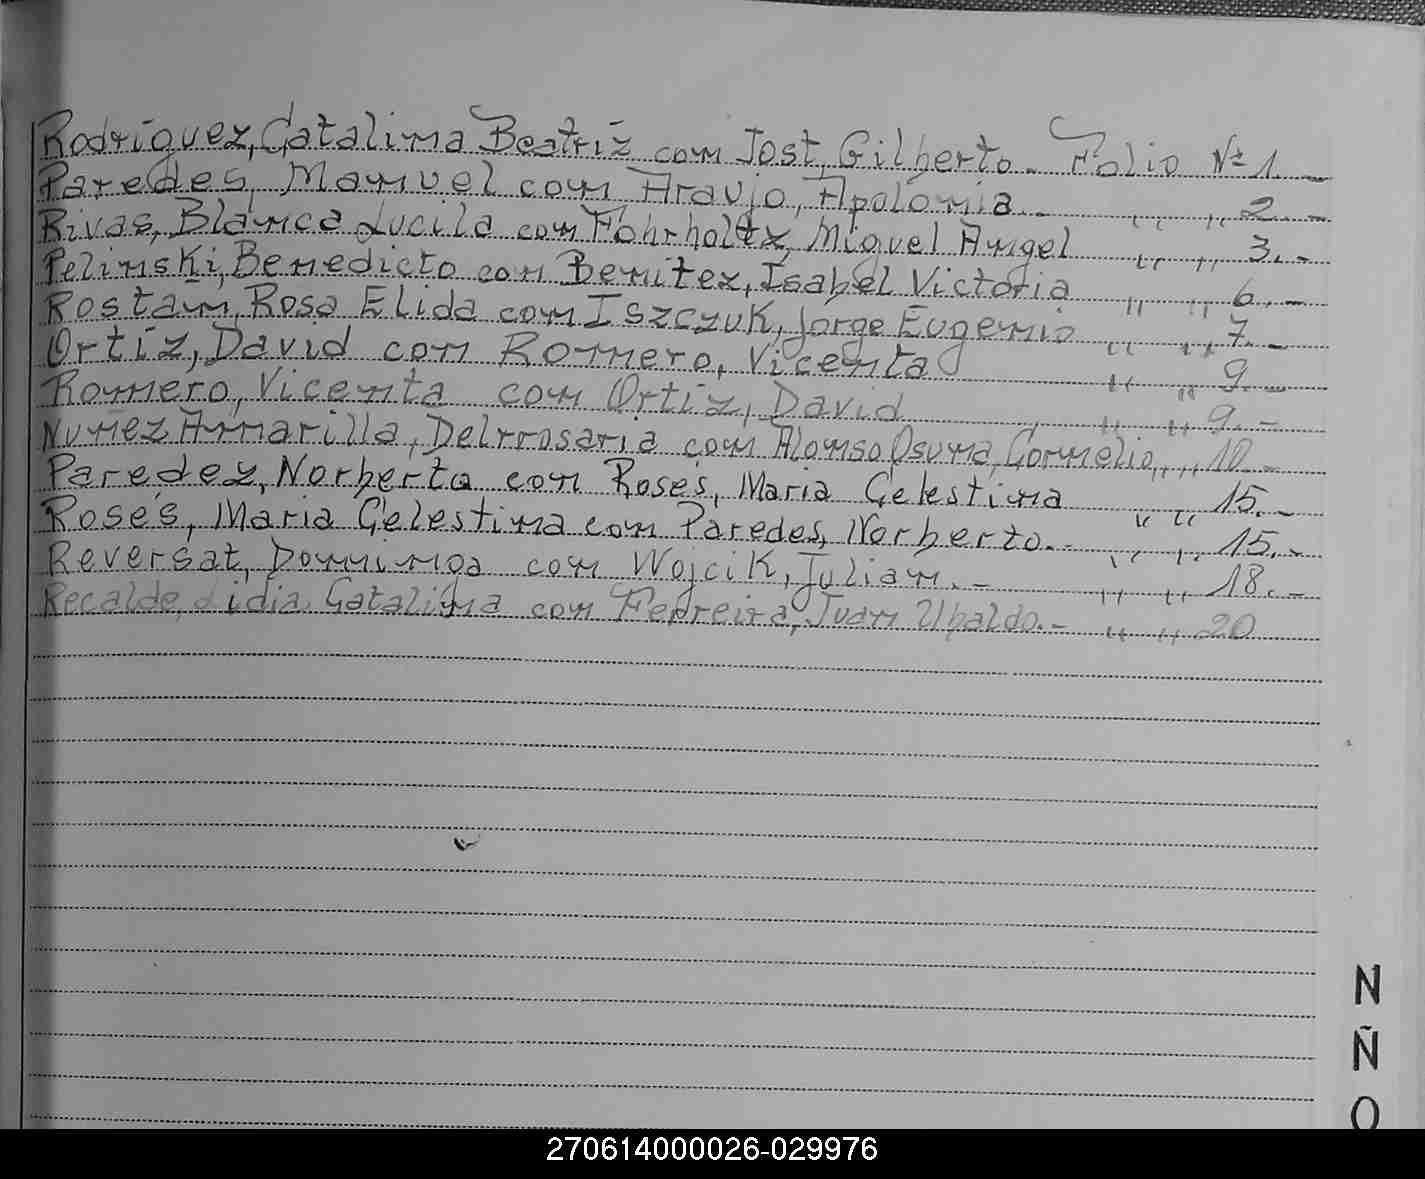 Rodriguez, Catalina Beatriz con Jost, Gilberto.- Folio Nº 1.-
Paredes, Manuel con Araujo, Apolonia.- " " 2.-
Rivas, Blanca Lucila con Fohrholtz, Miguel Angel " " 3.-
Pelinski, Benedicto con Benitez, Isabel Victoria " " 6.-
Rostan, Rosa Elida con Iszczuk, Jorge Eugenio " " 7.-
Ortiz, David con Romero, Vicenta " " 9.-
Romero, Vicenta con Ortiz, David " " 9.-
Nuñez Amarilla, Delrrosaria con Alonso Osuna, Cornelio, " " 10.-
Paredez, Norberto con Rosés, Maria Celestina " " 15.-
Rosés, Maria Celestina con Paredes, Norberto.- " " 15.-
Reversat, Dominga con Wojcik, Julian.- " " 18.-
Recalde, Lidia Catalina con Ferreira, Juan Ubaldo.- " " 20
N
Ñ
O
270614000026-029976